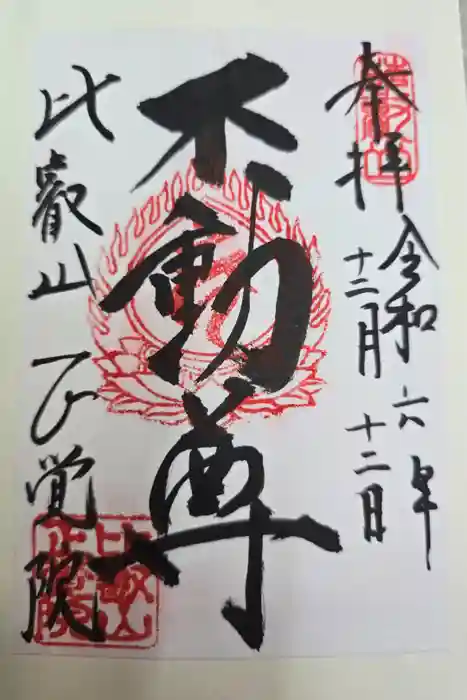 奉拝
令和六年
十二月十二日
不動尊
比叡山 止覚院